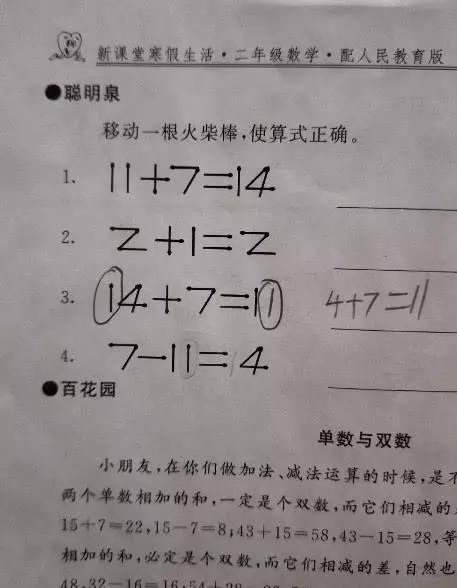 新课堂寒假生活·二年级数学·配人民教育版
●聪明泉
移动一根火柴棒,使算式正确。
1. 11+7=14
2. Z+1=Z
3. 14+7=11 4+7=11
4. 7-11=4
●百花园
单数与双数
小朋友,在你们做加法、减法运算的时候,是
两个单数相加的和,一定是个双数,而它们相减的
15+7=22,15-7=8;43+15=58,43-15=28,等
相加的和,必定是个双数,而它们相减的差,自然也
48,32-16=16;54+28